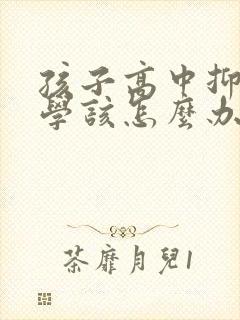 孩子高中抑
學該怎麼办
茶靡月兒1